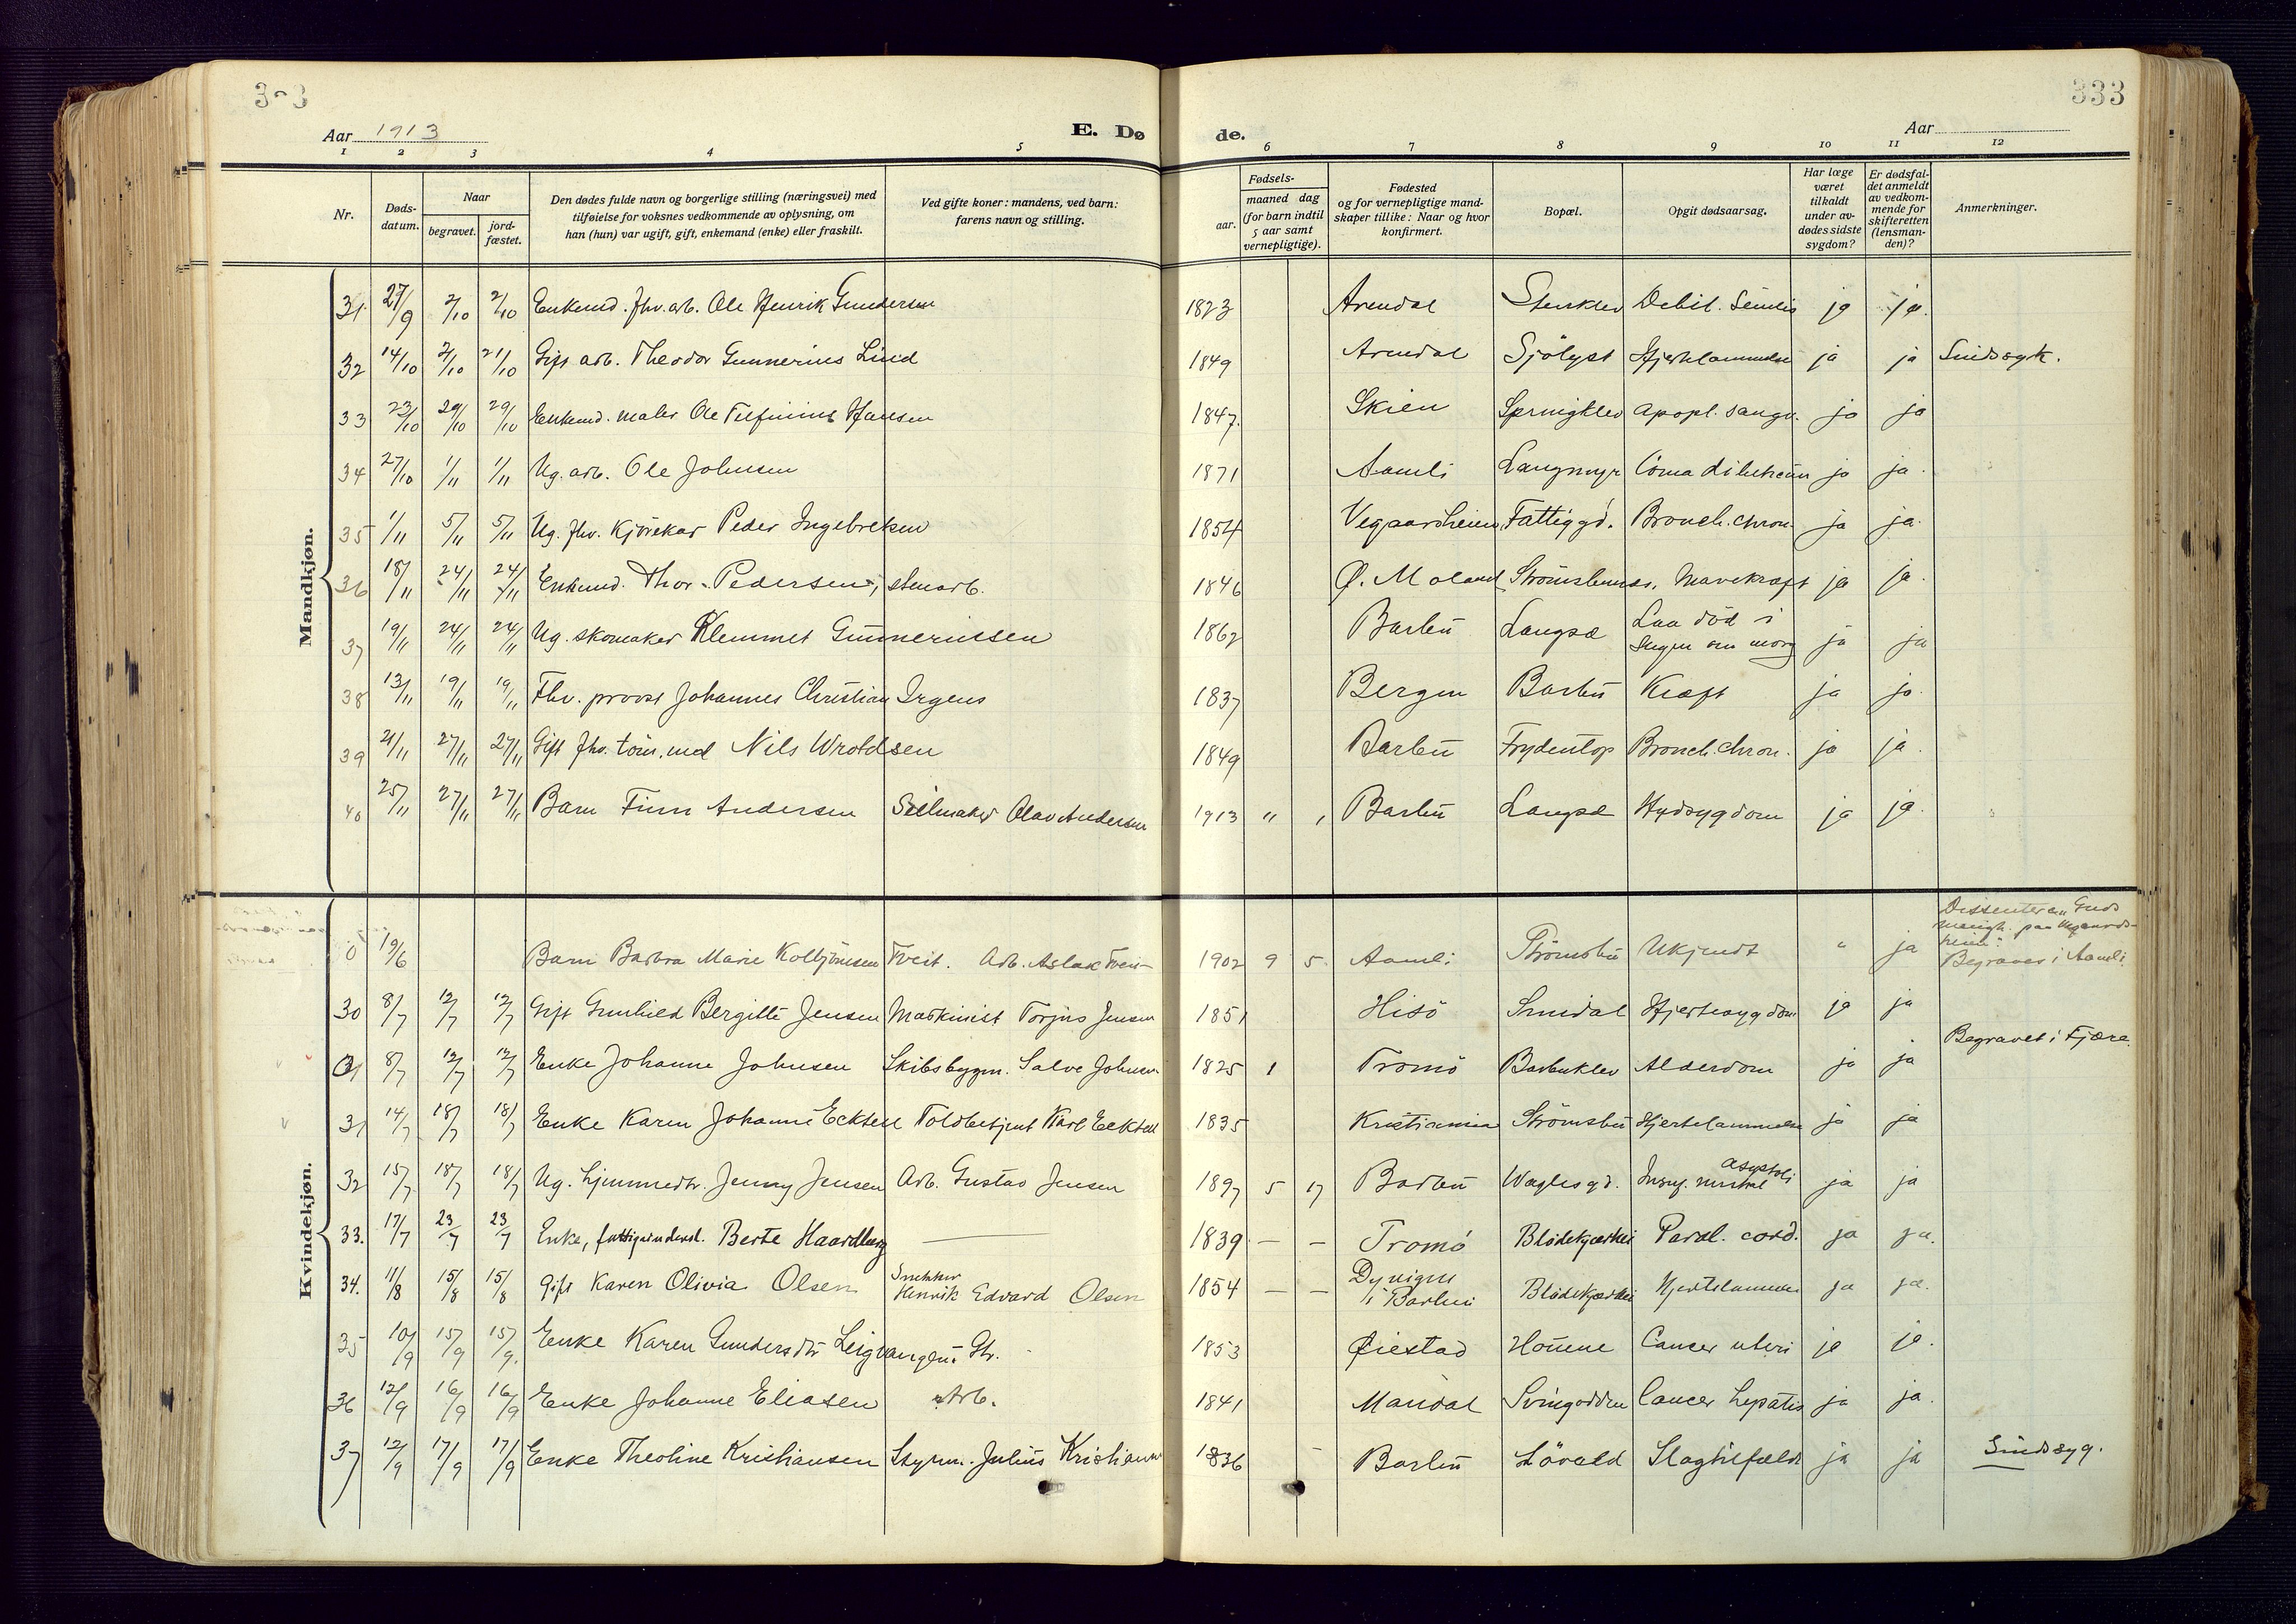 333
Aar 1913
E. Dø
de.
Aar
333
1 2 3 4 5 6 7 8 9 10 11 12
Nr.
Døds-datum.
Naar
begravet.
jord-fæstet.
Den dødes fulde navn og borgerlige stilling (næringsvei) med
tilføielse for voksnes vedkommende av oplysning, om
han (hun) var ugift, gift, enkemand (enke) eller fraskilt.
Ved gifte koner: mandens, ved barn:
farens navn og stilling.
Fødsels-
aar.
maaned dag
(for barn indtil
5 aar samt
vernepligtige).
Fødested
og for vernepligtige mand-
skaper tillike: Naar og hvor
konfirmert.
Bopæl.
Opgit dødsaarsag.
Har læge
været
tilkaldt
under av-
dødes sidste
sygdom?
Er dødsfal-
det anmeldt
av vedkom-
mende for
skifteretten
(lensman-
den)?
Anmerkninger.
Mandkjøn.
31 27/9 2/10 2/10 Enkemd. fhv. arb. Ole Henrik Gundersen 1823 Arendal Stenklev Debil. Senilis ja ja.
32 14/10 21/10 21/10 Gift arb. Theodor Gunnerius Lind 1849 Arendal Sjölyst Hjertelammelse ja ja Sindssyk.
33 23/10 29/10 29/10 Enkemd. maler Ole Hansen 1847. Skien Springklev Apopl. sangv. ja ja
34 27/10 1/11 1/11 Ug. arb. Ole Johnsen 1871 Aamli Langmyr Coma ja ja.
35 1/11 5/11 5/11 Ug. fhv. Peder Ingebretsen 1854 Vegaarsheien Fattiggd. Bronch. chron. ja ja.
36 18/11 24/11 24/11 Enkemd. Thor Pedersen, stenarb. 1846 Ø. Moland Strömsbu Mavekræft ja ja.
37 19/11 24/11 24/11 Ug. skomaker Klemmet Gunneriussen 1862 Barbu Langsæ Laa död i
sengen om morg ja ja
38 13/11 19/11 19/11 Fhv. provst Johannes Christian Irgens 1837 Bergen Barbu Kræft ja ja.
39 21/11 27/11 27/11 Gift fhv. töm. md Nils Wroldsen 1849 Barbu Frydentop Bronch. chron. ja ja.
40 25/11 27/11 27/11 Barn Finn Andersen Seilmaker Olav Andersen 1913 " , Barbu Langsæ Hydsygdom ja ja.
Kvindekjøn.
0 19/6 Barn Barbra Marie Kolbjörnsen Tveit. Arb. Aslak Tveit 1902 9 5. Aamli Strömsbu Ukjendt " ja Dissenter
Begravet i Aamli.
30 8/7 12/7 12/7 Gift Gunhild Bergitte Jensen Maskinist Torjus Jensen 1851 Hisö Smidal Hjertesygdom ja ja
12/7 12/7 8/7 Enke Johanne Johnsen Skibsbygm. Salve Johnsen 1825 1 Tromö Barbuklev Alderdom ja ja Begravet i Fjære.
31 14/7 18/7 18/7 Enke Karen Johanne Ecktell Toldbetjent Karl Ecktell 1835 Kristiania Strömsbu Hjertelammelse ja ja
32 15/7 18/7 18/7 Ug. hjemmedtr. Jenny Jensen Arb. Gustav Jensen 1897 5 17 Barbu Waglesgd. Insuf. mitral asystoli ja ja
33. 17/7 23/7 23/7 Enke, fattigunderst. Berte Haardberg — 1839 — — Tromö Blödekjærhei Paral. cord. ja ja.
34. 11/8 15/8 15/8 Gift Karen Olivia Olsen Snekker
Henrik Edvard Olsen 1854 — — Dyvigen
i Barbu Blödekjærhei Hjertelammelse ja ja.
35 10/9 15/9 15/9. Enke Karen Gundersdtr Leigvangen. 1853 Øiestad Houene Cancer uteri ja ja.
36 12/9 16/9 16/9 Enke Johanne Eliasen Arb. 1841 Mandal Svingodden Cancer hepatis ja ja.
37 12/9 17/9 17/9 Enke Theoline Kristiansen Styrm. Julius Kristiansen 1836 Barbu Lövold Slagtilfælde ja ja Sindssyg.